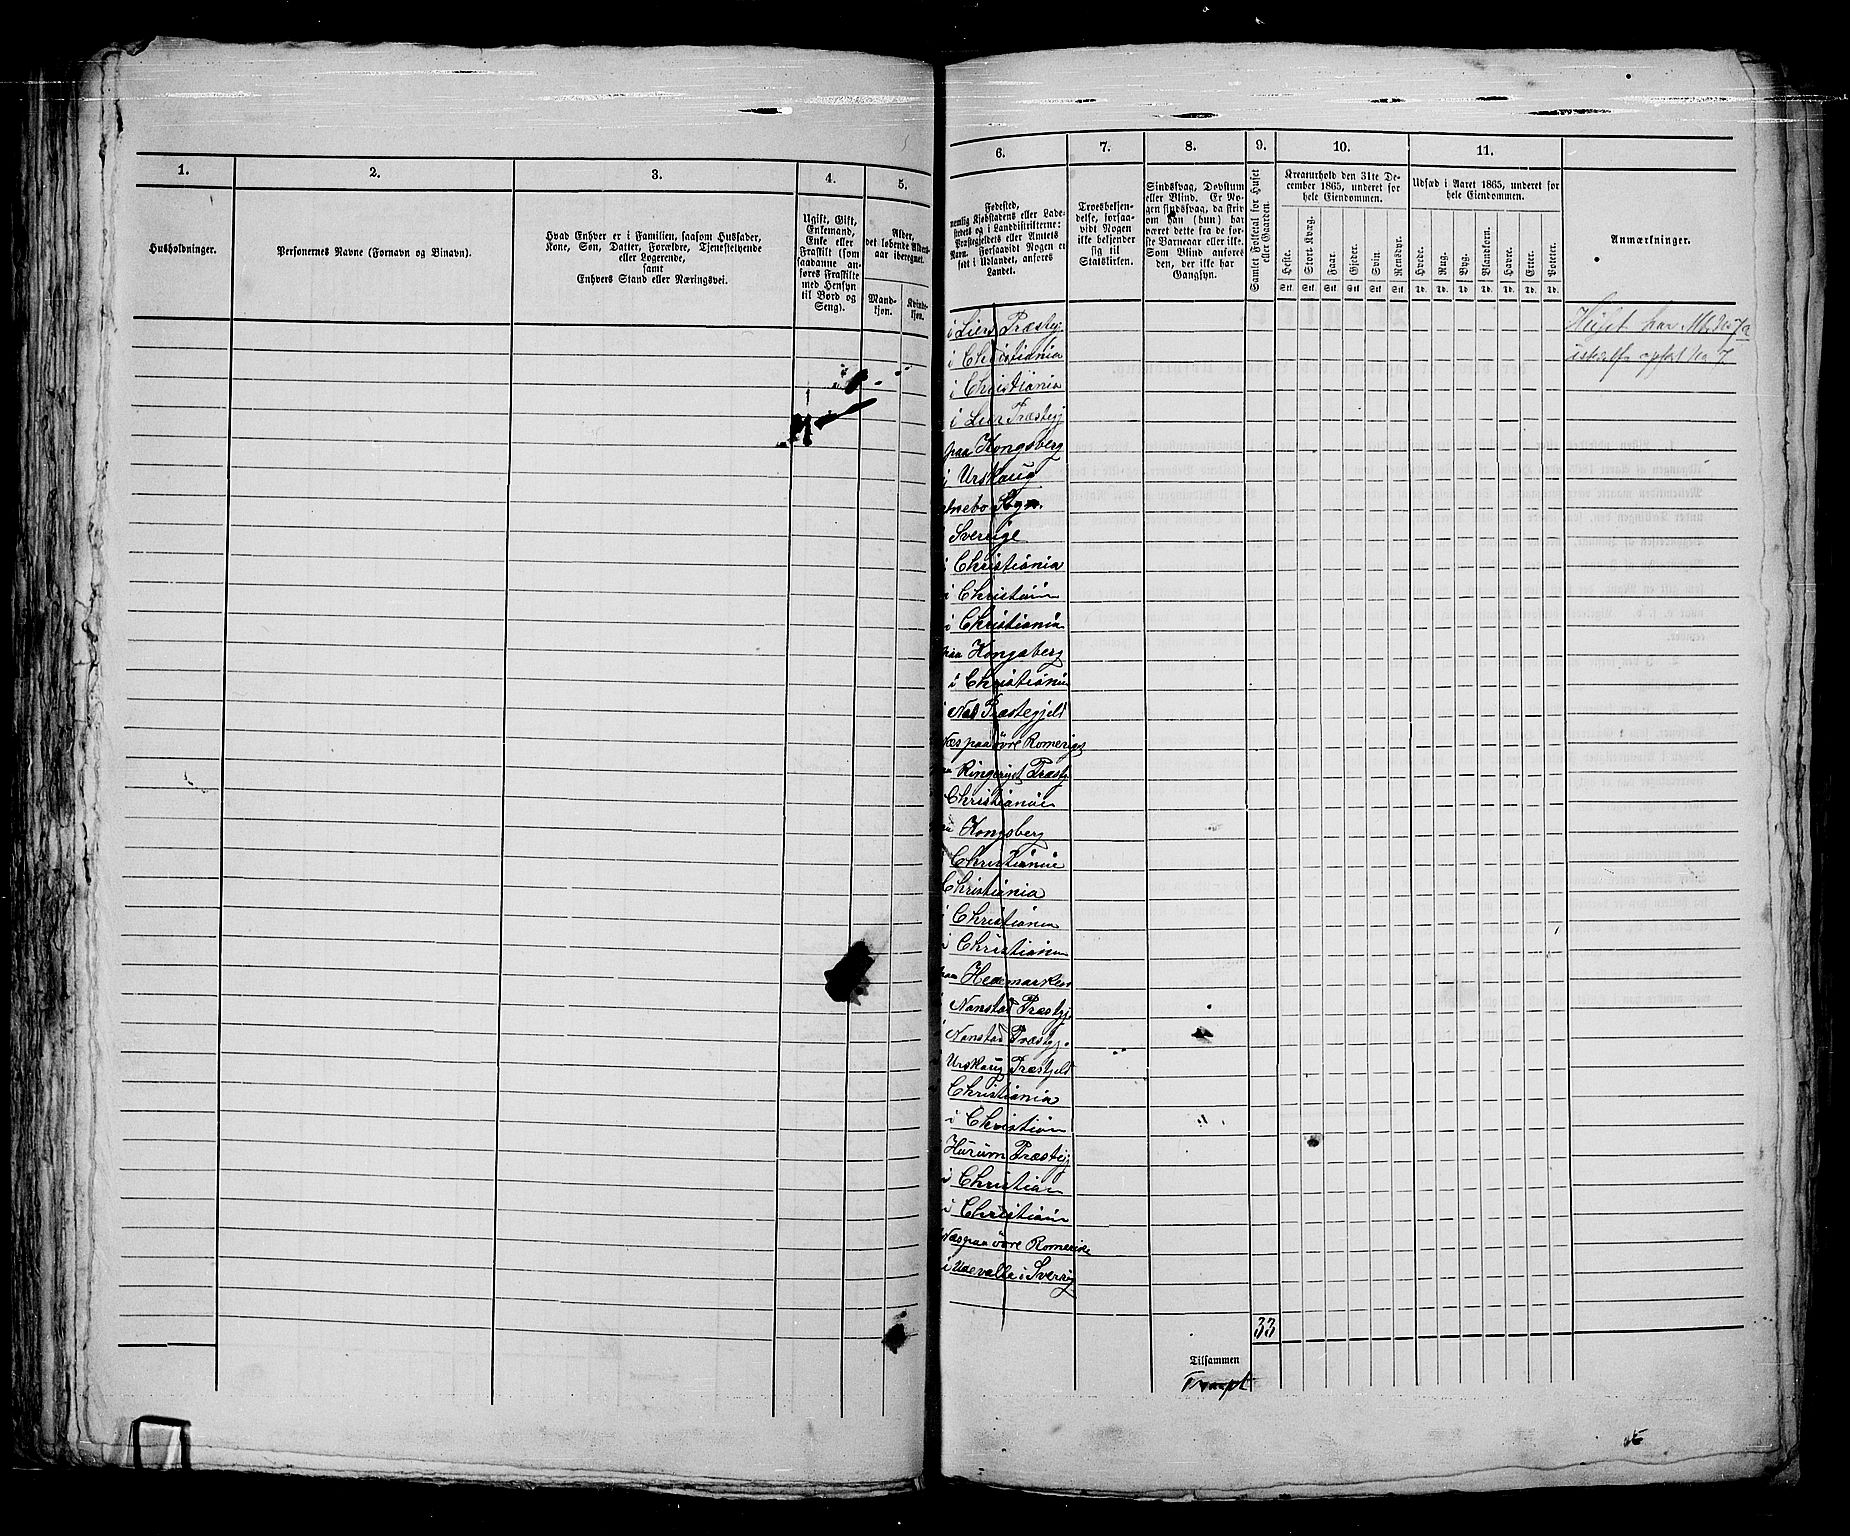 1.
2.
3.
4.
5.
Husholdninger.
Personernes Navne (Fornavn og Binavn).
Hvad Enhver er i Familien, saasom Husfader,
Kone, Søn, Datter, Forældre, Tjenestetyende
eller Logerende,
samt
Enhvers Stand eller Næringsvei.
Ugift, Gift,
Enkemand,
Enke eller
Fraskilt (som
saadanne an-
føres Fraskilte
med Hensyn
til Bord og
Seng).
Alder,
det løbende Alders-
aar iberegnet.
Mand-
kjøn.
Kvinde-
kjøn.
6.
7.
8.
9.
10.
11.
Fødested,
nemlig Kjøbstadens eller Lade-
stedets og i Landdistrikterne:
Præstegjeldets eller Amtets
Navn. Forsaavidt Nogen er
født i Udlandet, anføres
Landet.
Troesbekjen-
delse, forsaa-
vidt Nogen
ikke bekjender
sig til
Statskirken.
Sindssvag, Døvstum
eller Blind. Er No-
gen sindssvag, da skriv
om han (hun) har
været dette fra de før-
ste Barneaar eller ikke.
Som Blind anføres
den, der ikke har
Gangsyn.
Samlet Folketal for Huset
eller Gaarden.
Kreaturhold den 31te De-
cember 1865, underet for
hele Eiendommen.
Heste.
Stort Kvæg.
Faar.
Gjeder.
Svin.
Rensdyr.
Stk. Stk. Stk. Stk. Stk. Stk.
Udsæd i Aaret 1865, underet for
hele Eiendommen.
Hvede.
Rug.
Byg.
Blandkorn.
Havre.
Erter.
Poteter.
Td. Td. Td. Td. Td. Td. Td.
Anmærkninger.
i Lier Præstgj.
i Christiania
i Christiania
i Lier Præstegj
paa Kongsberg
i Urskoug
Sogn.
Sverige
i Christiania
i Christian
i Christiania
paa Kongsberg
i Christiania
i Næs Præstegjeld
Næs paa övre Romerige
paa Ringeriget Præstgj
Christiania
paa Kongsberg
i Christiania
Christiania
i Christiania
i Christiania
paa Hedemarken
Nanstad Præstgj
i Nanstad Præstgj.
Urskoug Præstgjeld
Christiania
i Christian
Hurum Præstegj
i Christian
i Christian
Næs paa övre Romerige
i Udevalle i Sverrig
Huset har
7
33
Tilsammen